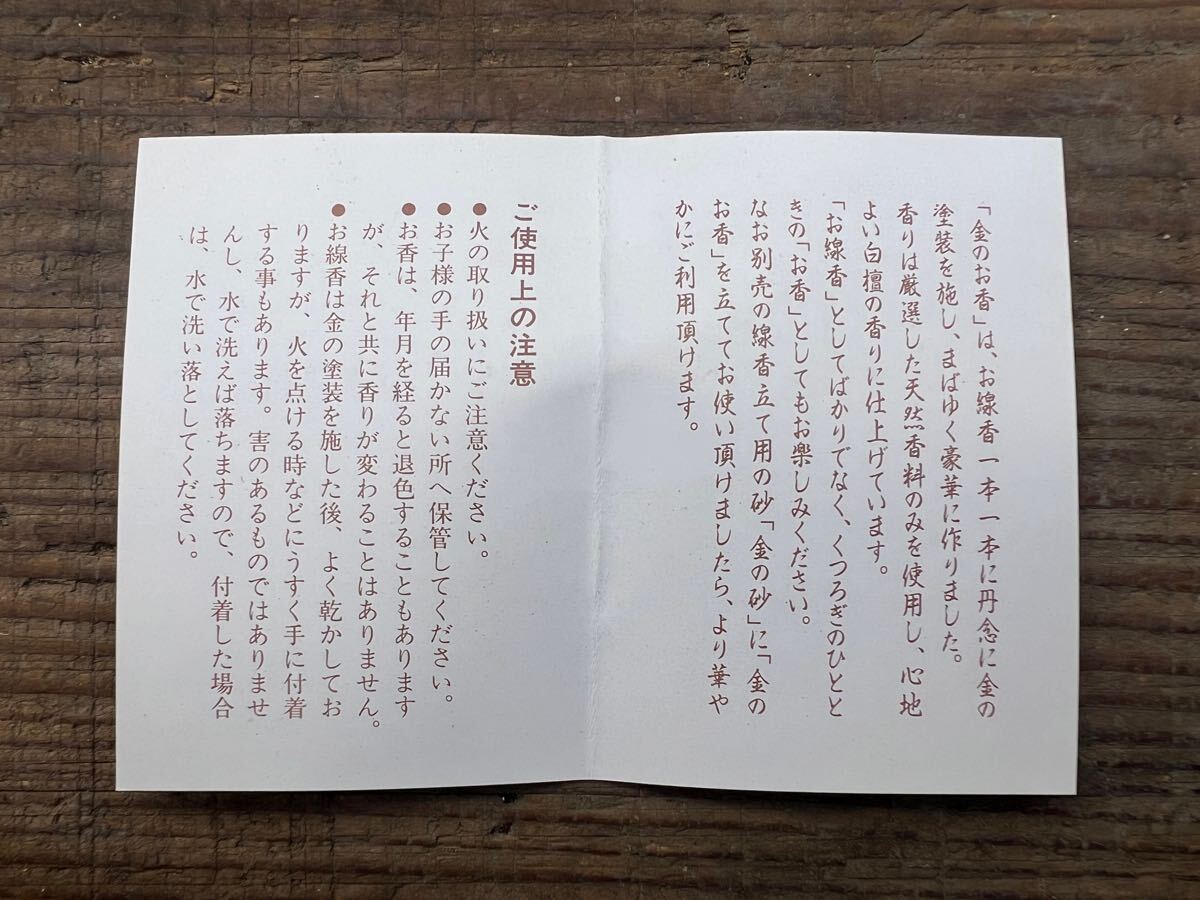 「金のお香」は、お線香一本一本に丹念に金の
塗装を施し、まばゆく豪華に作りました。
香りは厳選した天然香料のみを使用し、心地
よい白檀の香りに仕上げています。
「お線香」としてばかりでなく、くつろぎのひとと
きの「お香」としてもお楽しみください。
なお別売の線香立て用の砂「金の砂」に「金の
お香」を立ててお使い頂けましたら、より華や
かにご利用頂けます。
ご使用上の注意
●火の取り扱いにご注意ください。
●お子様の手の届かない所へ保管してください。
●お香は、年月を経ると退色することもあります
が、それと共に香りが変わることはありません。
●お線香は金の塗装を施した後、よく乾かしてお
りますが、火を点ける時などにうすく手に付着
する事もあります。害のあるものではありませ
んし、水で洗えば落ちますので、付着した場合
は、水で洗い落としてください。